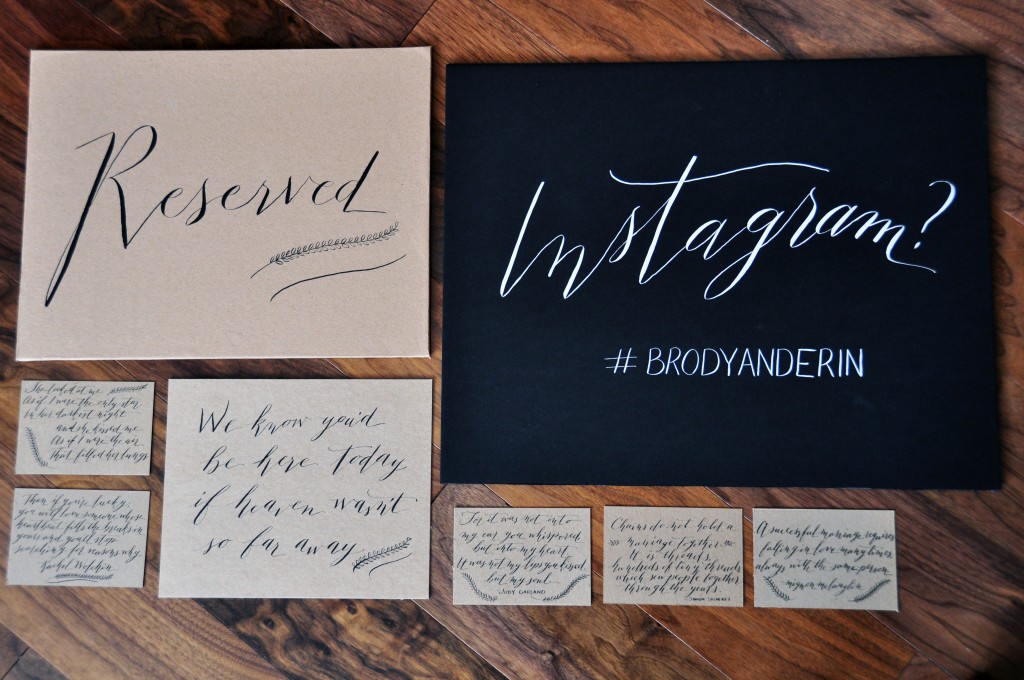 Reserved
Instagram?
# BRODYANDERIN
She looked at me
As if I were the only star
in her darkest night
and she kissed me
As if I were the air
That filled her lungs
Then if you're lucky,
you will love someone whose
heartbeat fills the breaks in
yours and you'll stop
searching for reasons why.
We know you'd
be here today
if heaven wasn't
so far away
For it was not into
my ear you whispered
but into my heart.
It was not my lips you kissed
but my soul.
JUDY GARLAND
Chains do not hold a
marriage together.
It is threads,
hundreds of tiny threads
which sew people together
through the years.
A successful marriage requires
falling in love many times,
always with the same person.
mignon mclaughlin